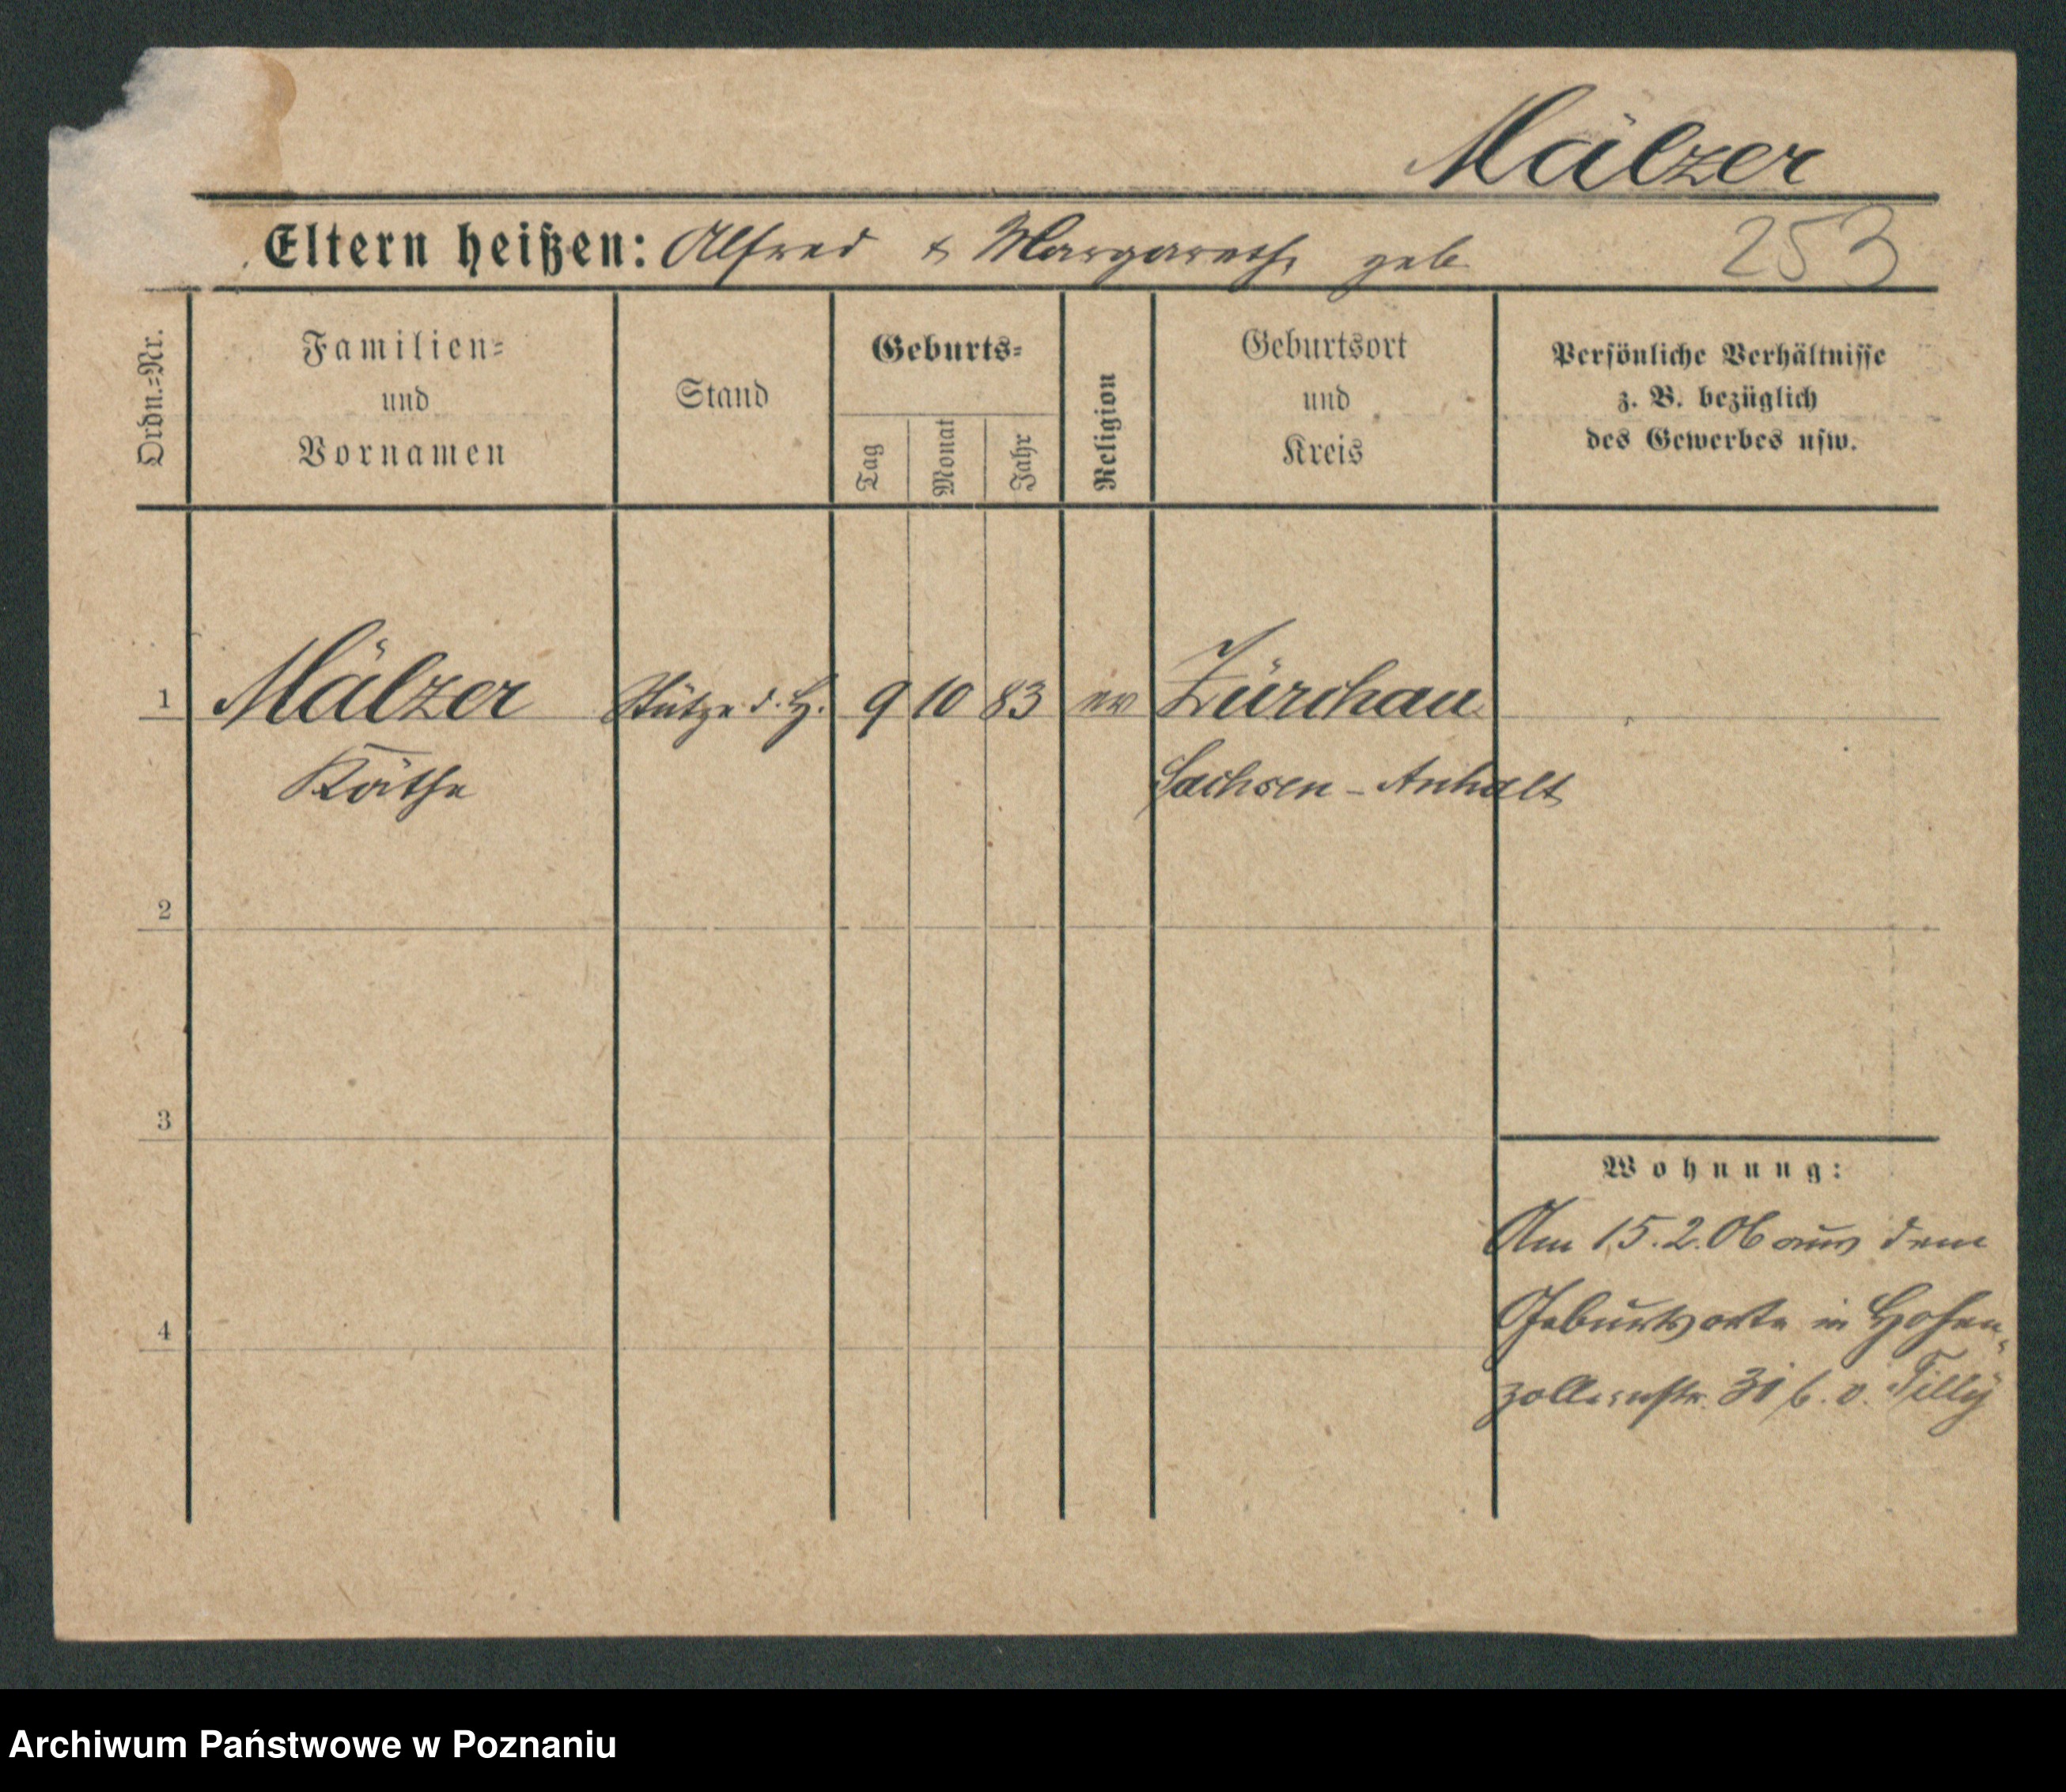 Mälzer
Eltern heißen: Alfred & Margarethe geb
253
Ordn.-Nr.
Familien-
und
Vornamen
Stand
Geburts-
Tag
Monat
Jahr
Religion
Geburtsort
und
Kreis
Persönliche Verhältnisse
z. B. bezüglich
des Gewerbes usw.
1 Mälzer Stütze d. H. 9 10 83 ev Zürchau
Käthe Sachsen-Anhalt
2
3
Wohnung:
Am 15.2.06 aus dem
4 Geburtsorte in Hohen-
zollernstr. 31 b. v. Tilly
Archiwum Państwowe w Poznaniu